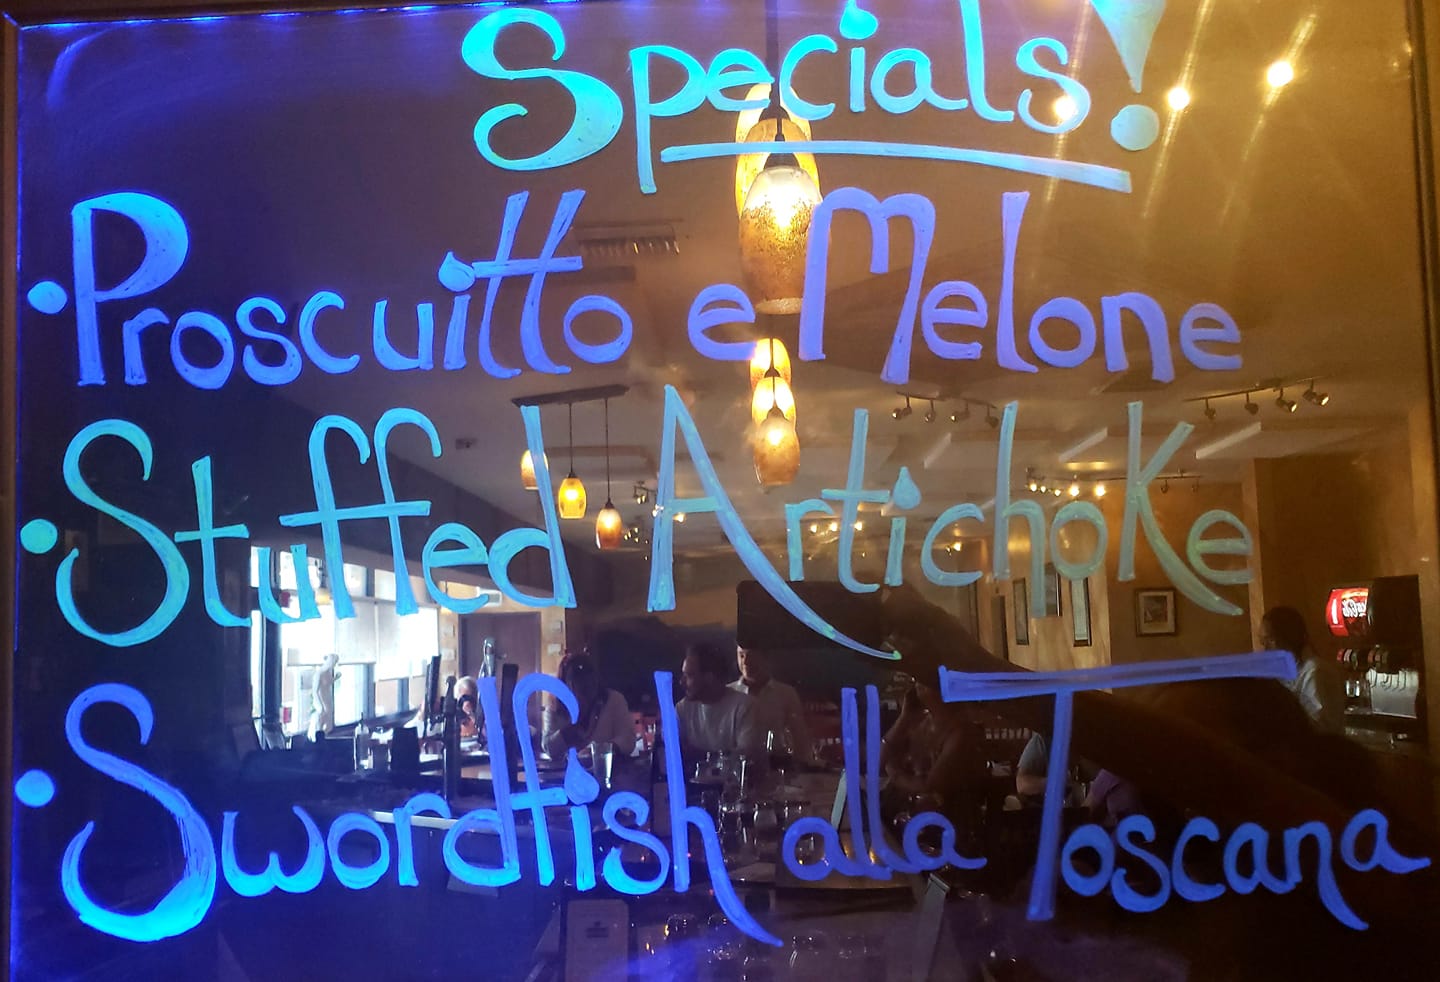 Specials!
• Proscuitto e Melone
• Stuffed Artichoke
• Swordfish alla Toscana